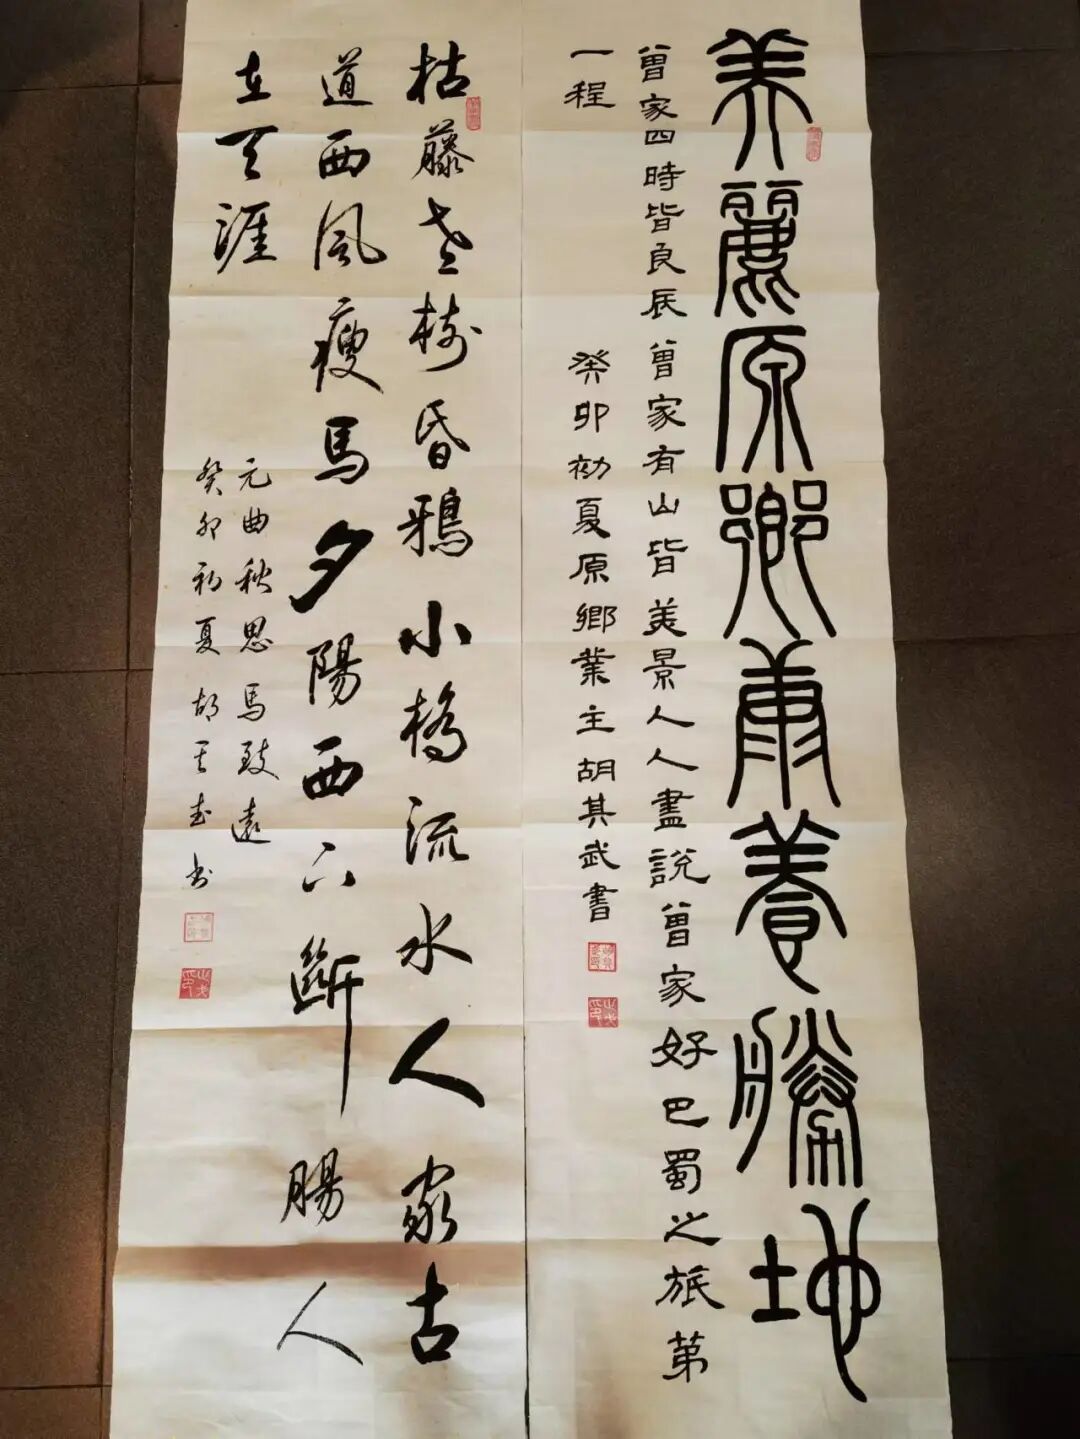 美麗原鄉康養勝地
曾家四時皆良辰曾家有山皆美景人人盡說曾家好巴蜀之旅第
一程
癸卯初夏原鄉業主胡其武書
枯藤老樹昏鴉小橋流水人家古
道西風瘦馬夕陽西下斷腸人
在天涯
元曲秋思馬致遠
癸卯初夏胡其武书